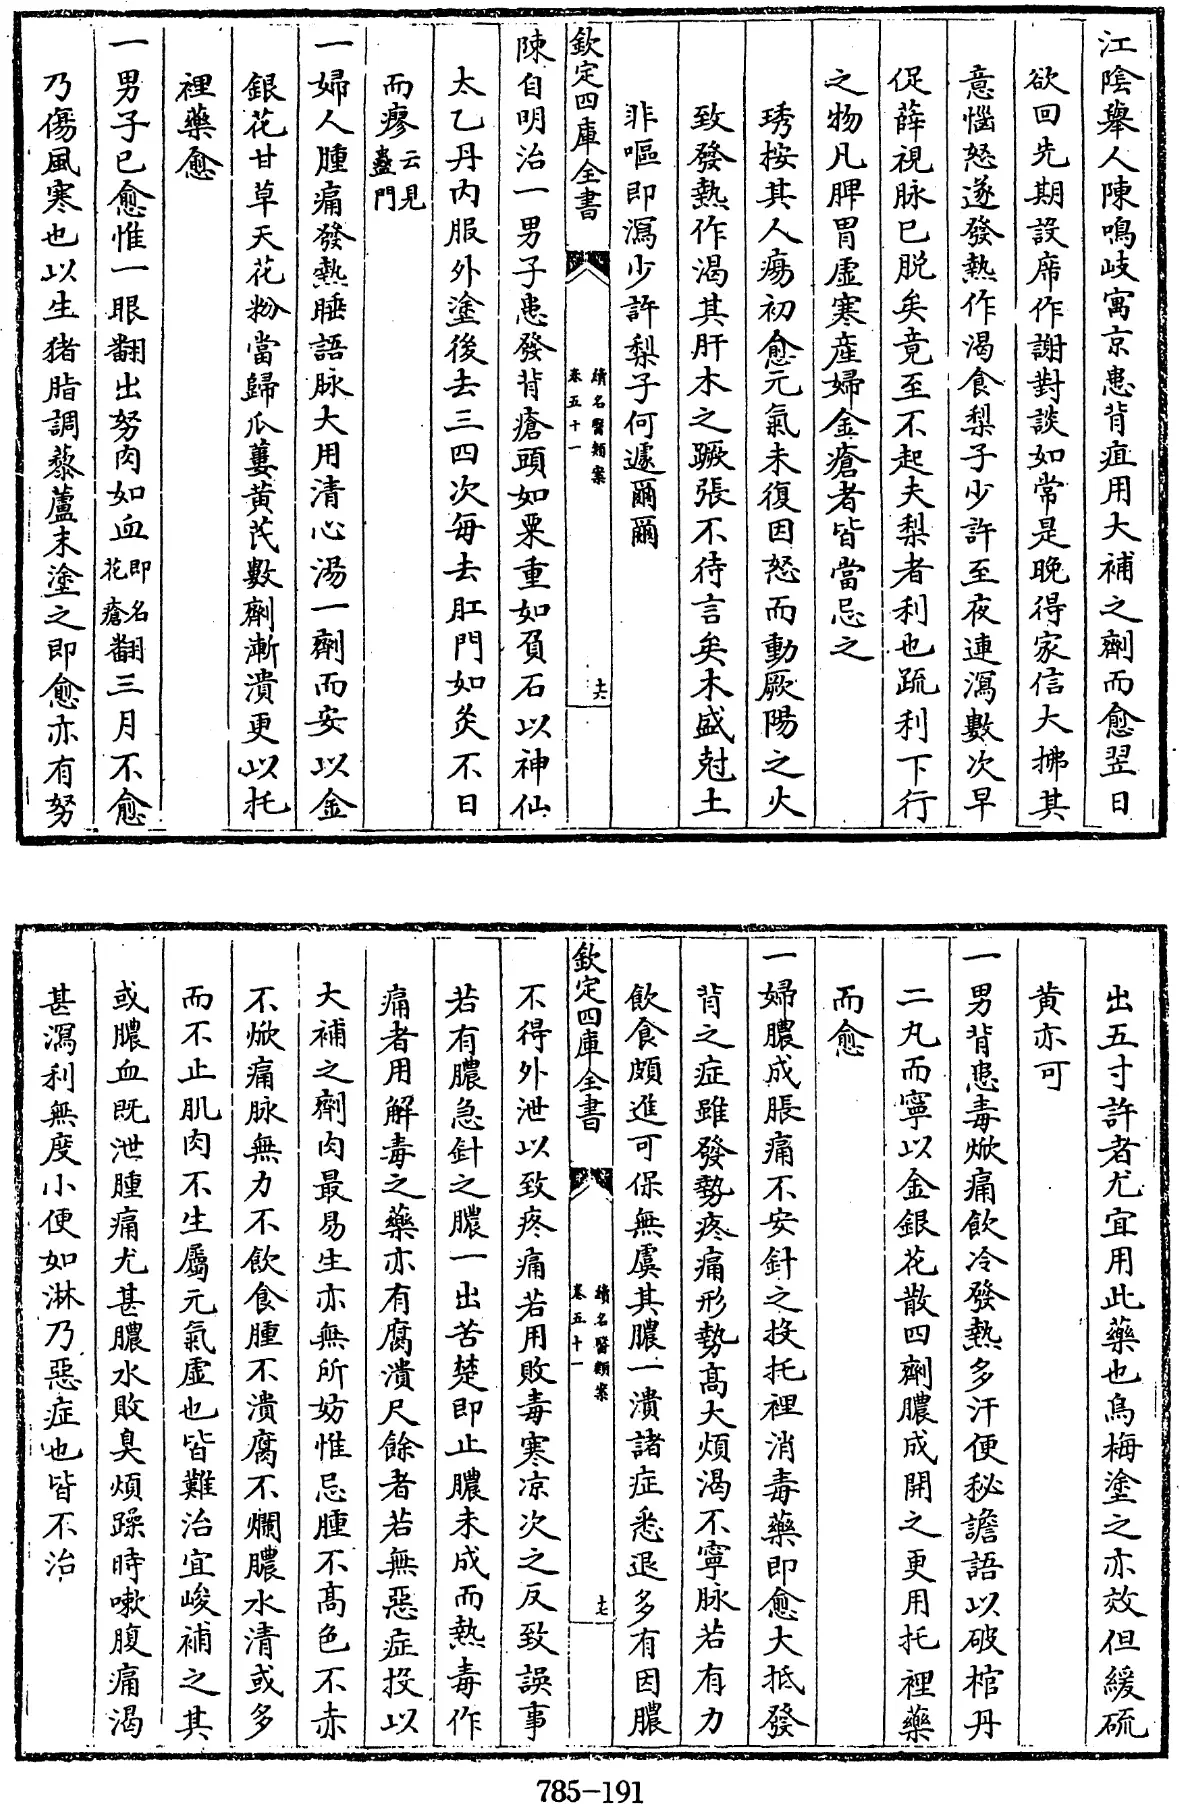 江陰舉人陳鳴岐寓京患背疽用大補之劑而愈翌日
欲回先期設席作謝對談如常是晚得家信大拂其
意惱怒遂發熱作渴食梨子少許至夜連瀉數次早
促薛視脉已脱矣竟至不起夫梨者利也疏利下行
之物凡脾胃虛寒產婦金瘡者皆當忌之
琇按其人瘍初愈元氣未復因怒而動厥陽之火
致發熱作渴其肝木之蹶張不待言矣木盛尅土
非嘔即瀉少許梨子何遽爾爾
欽定四庫全書
續名醫類案
卷五十一
十六
陳自明治一男子患發背瘡頭如粟重如負石以神仙
太乙丹内服外塗後去三四次每去肛門如炙不日
而瘳云見蠱門
一婦人腫痛發熱睡語脉大用清心湯一劑而安以金
銀花甘草天花粉當歸瓜蔞黄芪數劑漸潰更以托
裡藥愈
一男子已愈惟一眼翻出努肉如血即名翻花瘡三月不愈
乃傷風寒也以生猪脂調藜蘆末塗之即愈亦有努
出五寸許者尤宜用此藥也烏梅塗之亦效但緩硫
黄亦可
一男背患毒焮痛飲冷發熱多汗便秘譫語以破棺丹
二丸而寧以金銀花散四劑膿成開之更用托裡藥
而愈
一婦膿成脹痛不安針之投托裡消毒藥即愈大抵發
背之症雖發勢疼痛形勢高大煩渴不寧脉若有力
飲食頗進可保無虞其膿一潰諸症悉退多有因膿
欽定四庫全書
續名醫類案
卷五十一
十七
不得外泄以致疼痛若用敗毒寒凉次之反致誤事
若有膿急針之膿一出苦楚即止膿未成而熱毒作
痛者用解毒之藥亦有腐潰尺餘者若無惡症投以
大補之劑肉最易生亦無所妨惟忌腫不高色不赤
不焮痛脉無力不飲食腫不潰腐不爛膿水清或多
而不止肌肉不生屬元氣虛也皆難治宜峻補之其
或膿血既泄腫痛尤甚膿水敗臭煩躁時嗽腹痛渴
甚瀉利無度小便如淋乃惡症也皆不治
785-191